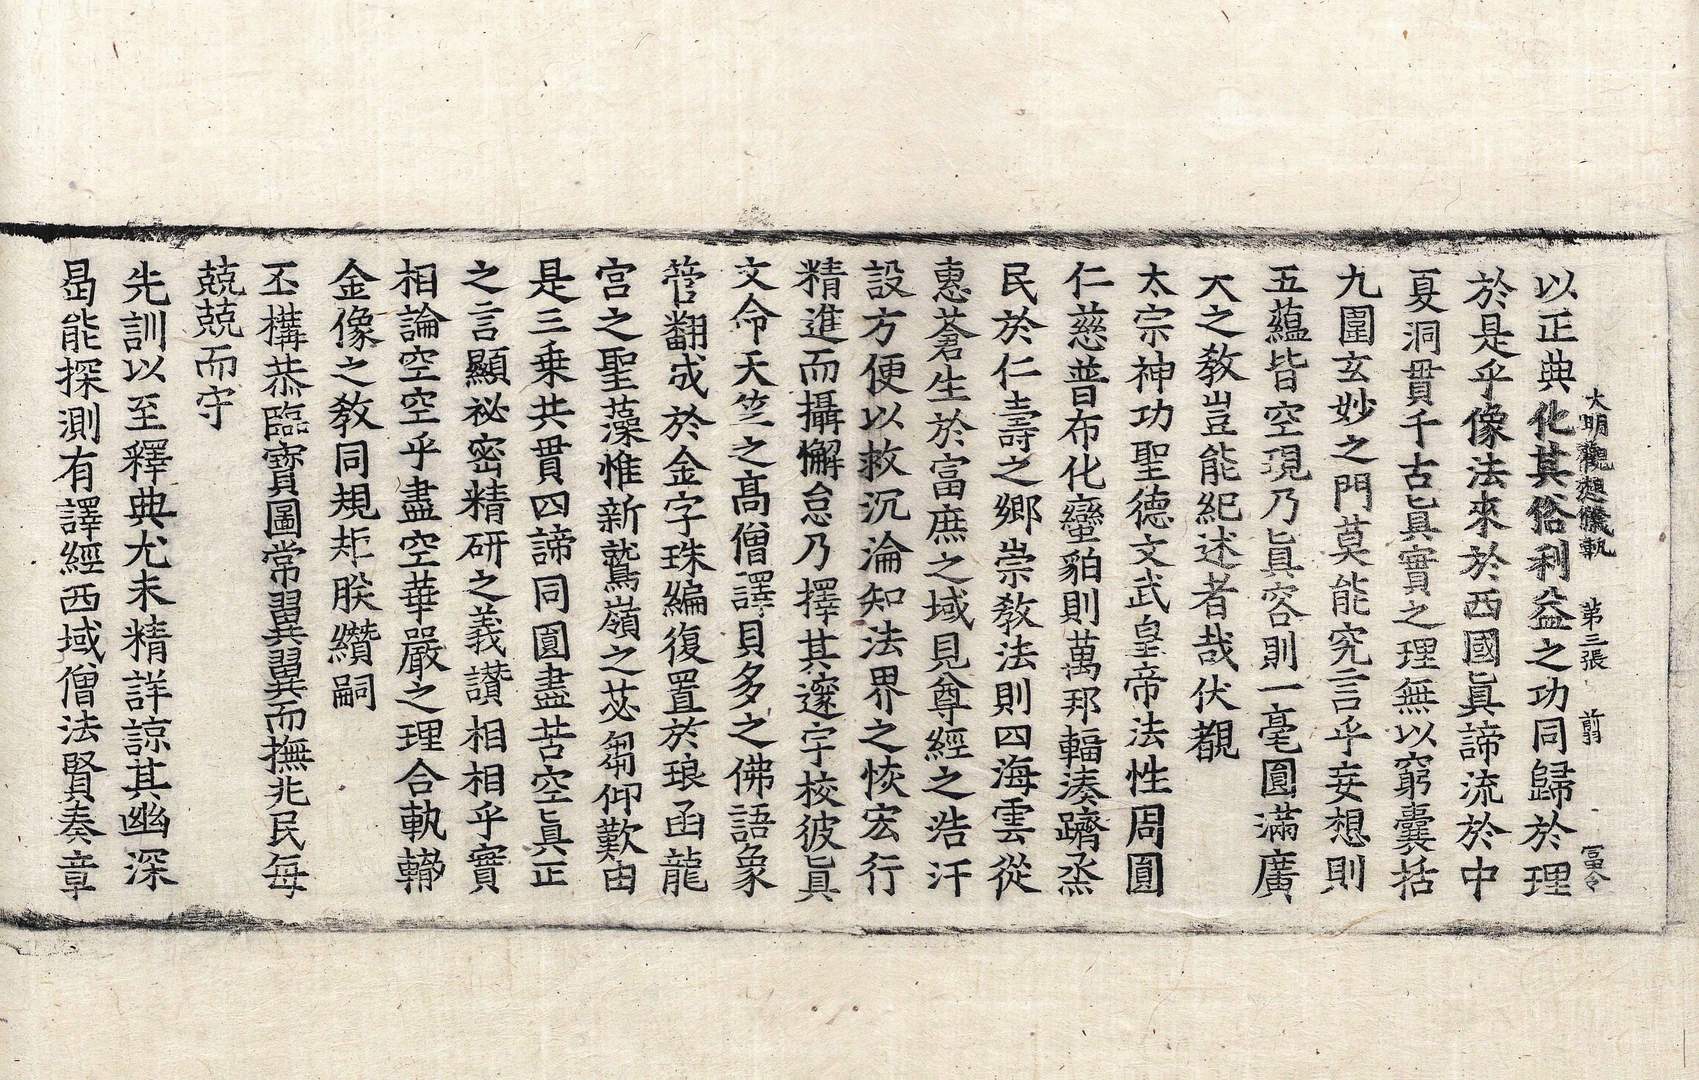 大明觀想儀軌 第三張 前 冨令
以正典化其俗利益之功同歸於理
於是乎像法來於西國眞諦流於中
夏洞貫千古眞實之理無以窮囊括
九圍玄妙之門莫能究言乎妄想則
五蘊皆空現乃眞容則一毫圓滿廣
大之教豈能紀述者哉伏覩
太宗神功聖德文武皇帝法性周圓
仁慈普布化蠻貊則萬邦輻湊躋烝
民於仁壽之鄉崇教法則四海雲從
惠蒼生於富庶之域見尊經之浩汗
設方便以救沉淪知法界之恢宏行
精進而攝懈怠乃擇其邃宇校彼眞
文命天竺之高僧譯貝多之佛語象
管翻成於金字珠編復置於琅函龍
宮之聖藻惟新鷲嶺之苾芻仰歎由
是三乗共貫四諦同圓盡苦空眞正
之言顯祕密精研之義讃相相乎實
相論空空乎盡空華嚴之理合軌轍
金像之教同規矩朕纘嗣
丕構恭臨寶圖常翼翼而撫兆民每
兢兢而守
先訓以至釋典尤未精詳諒其幽深
曷能探測有譯經西域僧法賢奏章